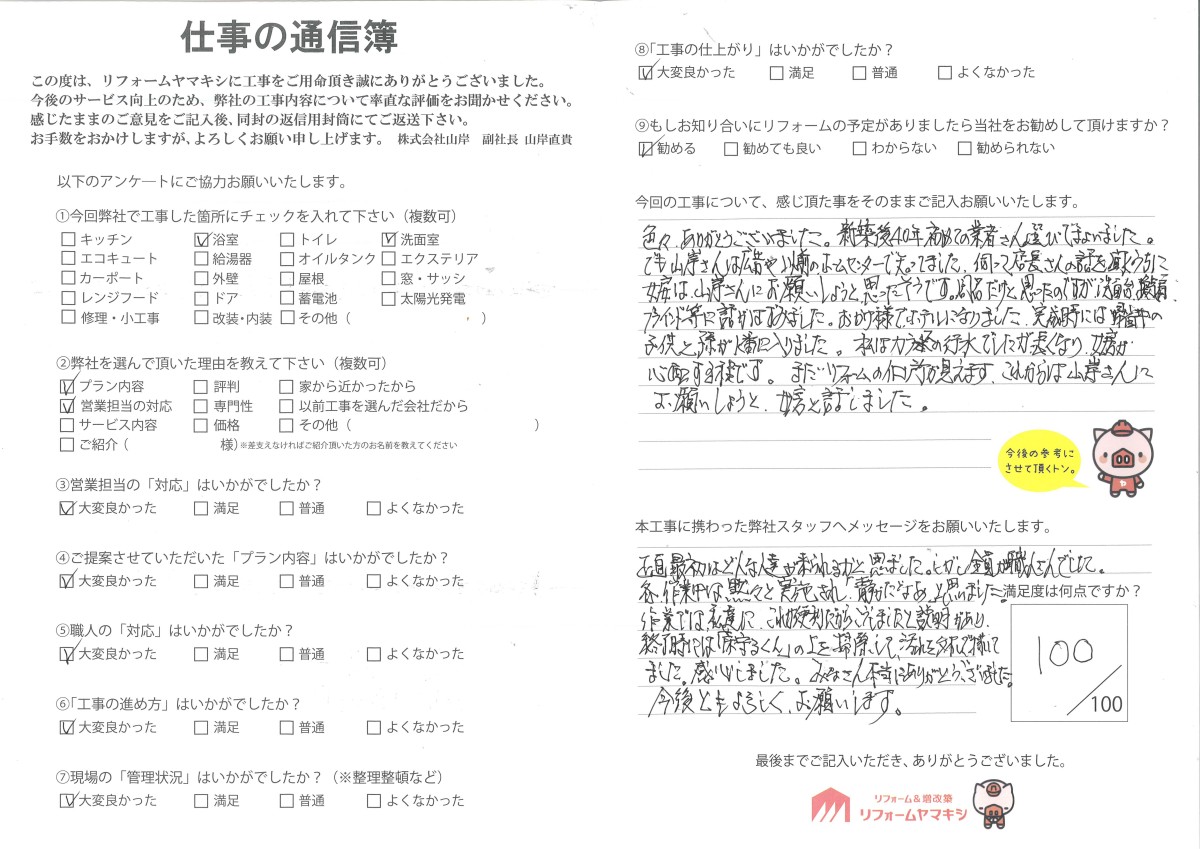 仕事の通信簿
この度は、リフォームヤマキシに工事をご用命頂き誠にありがとうございました。
今後のサービス向上のため、弊社の工事内容について率直な評価をお聞かせください。
感じたままのご意見をご記入後、同封の返信用封筒にてご返送下さい。
お手数をおかけしますが、よろしくお願い申し上げます。 株式会社山岸 副社長 山岸直貴
以下のアンケートにご協力お願いいたします。
①今回弊社で工事した箇所にチェックを入れて下さい（複数可）
□ キッチン ☑ 浴室 □ トイレ ☑ 洗面室
□ エコキュート □ 給湯器 □ オイルタンク □ エクステリア
□ カーポート □ 外壁 □ 屋根 □ 窓・サッシ
□ レンジフード □ ドア □ 蓄電池 □ 太陽光発電
□ 修理・小工事 □ 改装・内装 □ その他（ ）
②弊社を選んで頂いた理由を教えて下さい（複数可）
☑ プラン内容 □ 評判 □ 家から近かったから
☑ 営業担当の対応 □ 専門性 □ 以前工事を選んだ会社だから
□ サービス内容 □ 価格 □ その他（ ）
□ ご紹介（ 様）※差支えなければご紹介頂いた方のお名前を教えてください
③営業担当の「対応」はいかがでしたか？
☑ 大変良かった □ 満足 □ 普通 □ よくなかった
④ご提案させていただいた「プラン内容」はいかがでしたか？
☑ 大変良かった □ 満足 □ 普通 □ よくなかった
⑤職人の「対応」はいかがでしたか？
☑ 大変良かった □ 満足 □ 普通 □ よくなかった
⑥「工事の進め方」はいかがでしたか？
☑ 大変良かった □ 満足 □ 普通 □ よくなかった
⑦現場の「管理状況」はいかがでしたか？（※整理整頓など）
☑ 大変良かった □ 満足 □ 普通 □ よくなかった
⑧「工事の仕上がり」はいかがでしたか？
☑ 大変良かった □ 満足 □ 普通 □ よくなかった
⑨もしお知り合いにリフォームの予定がありましたら当社をお勧めして頂けますか？
☑ 勧める □ 勧めても良い □ わからない □ 勧められない
今回の工事について、感じ頂た事をそのままご記入お願いいたします。
色々ありがとうございました。新築後40年初めての業者さん選びでまよいました。
でも山岸さんは 以前のホームセンターで知ってました。伺って店長さんの話を
女房は山岸さんにお願いしようと思ったそうです。 だけと思ったのですが洗面台、
ブラインド等に話がはずみました。おかげ様でホテルになりました。完成時には帰省中の
子供と孫が1番に入りました。私はカラスの行水でしたが長くなり、女房が
心配する様です。まだリフォームの個所が見えます。これからは山岸さんに
お願いしようと、女房と話しました。
今後の参考に
させて頂くトン。
本工事に携わった弊社スタッフへメッセージをお願いいたします。
正直最初はどんな人達が来られるかと思いました。しかし全員が職人さんでした。
各、作業中は黙々と実施され「静かだなあ」と思いました。
作業では私達に、これが便利だからこうしましたと説明があり、
終了時には「床守るくん」の上を掃除して、汚れをタオルで拭いて
ました。感心しました。みなさん本当にありがとうございました。
今後ともよろしく、お願いします。
満足度は何点ですか？
100
/100
最後までご記入いただき、ありがとうございました。
リフォーム＆増改築
リフォームヤマキシ